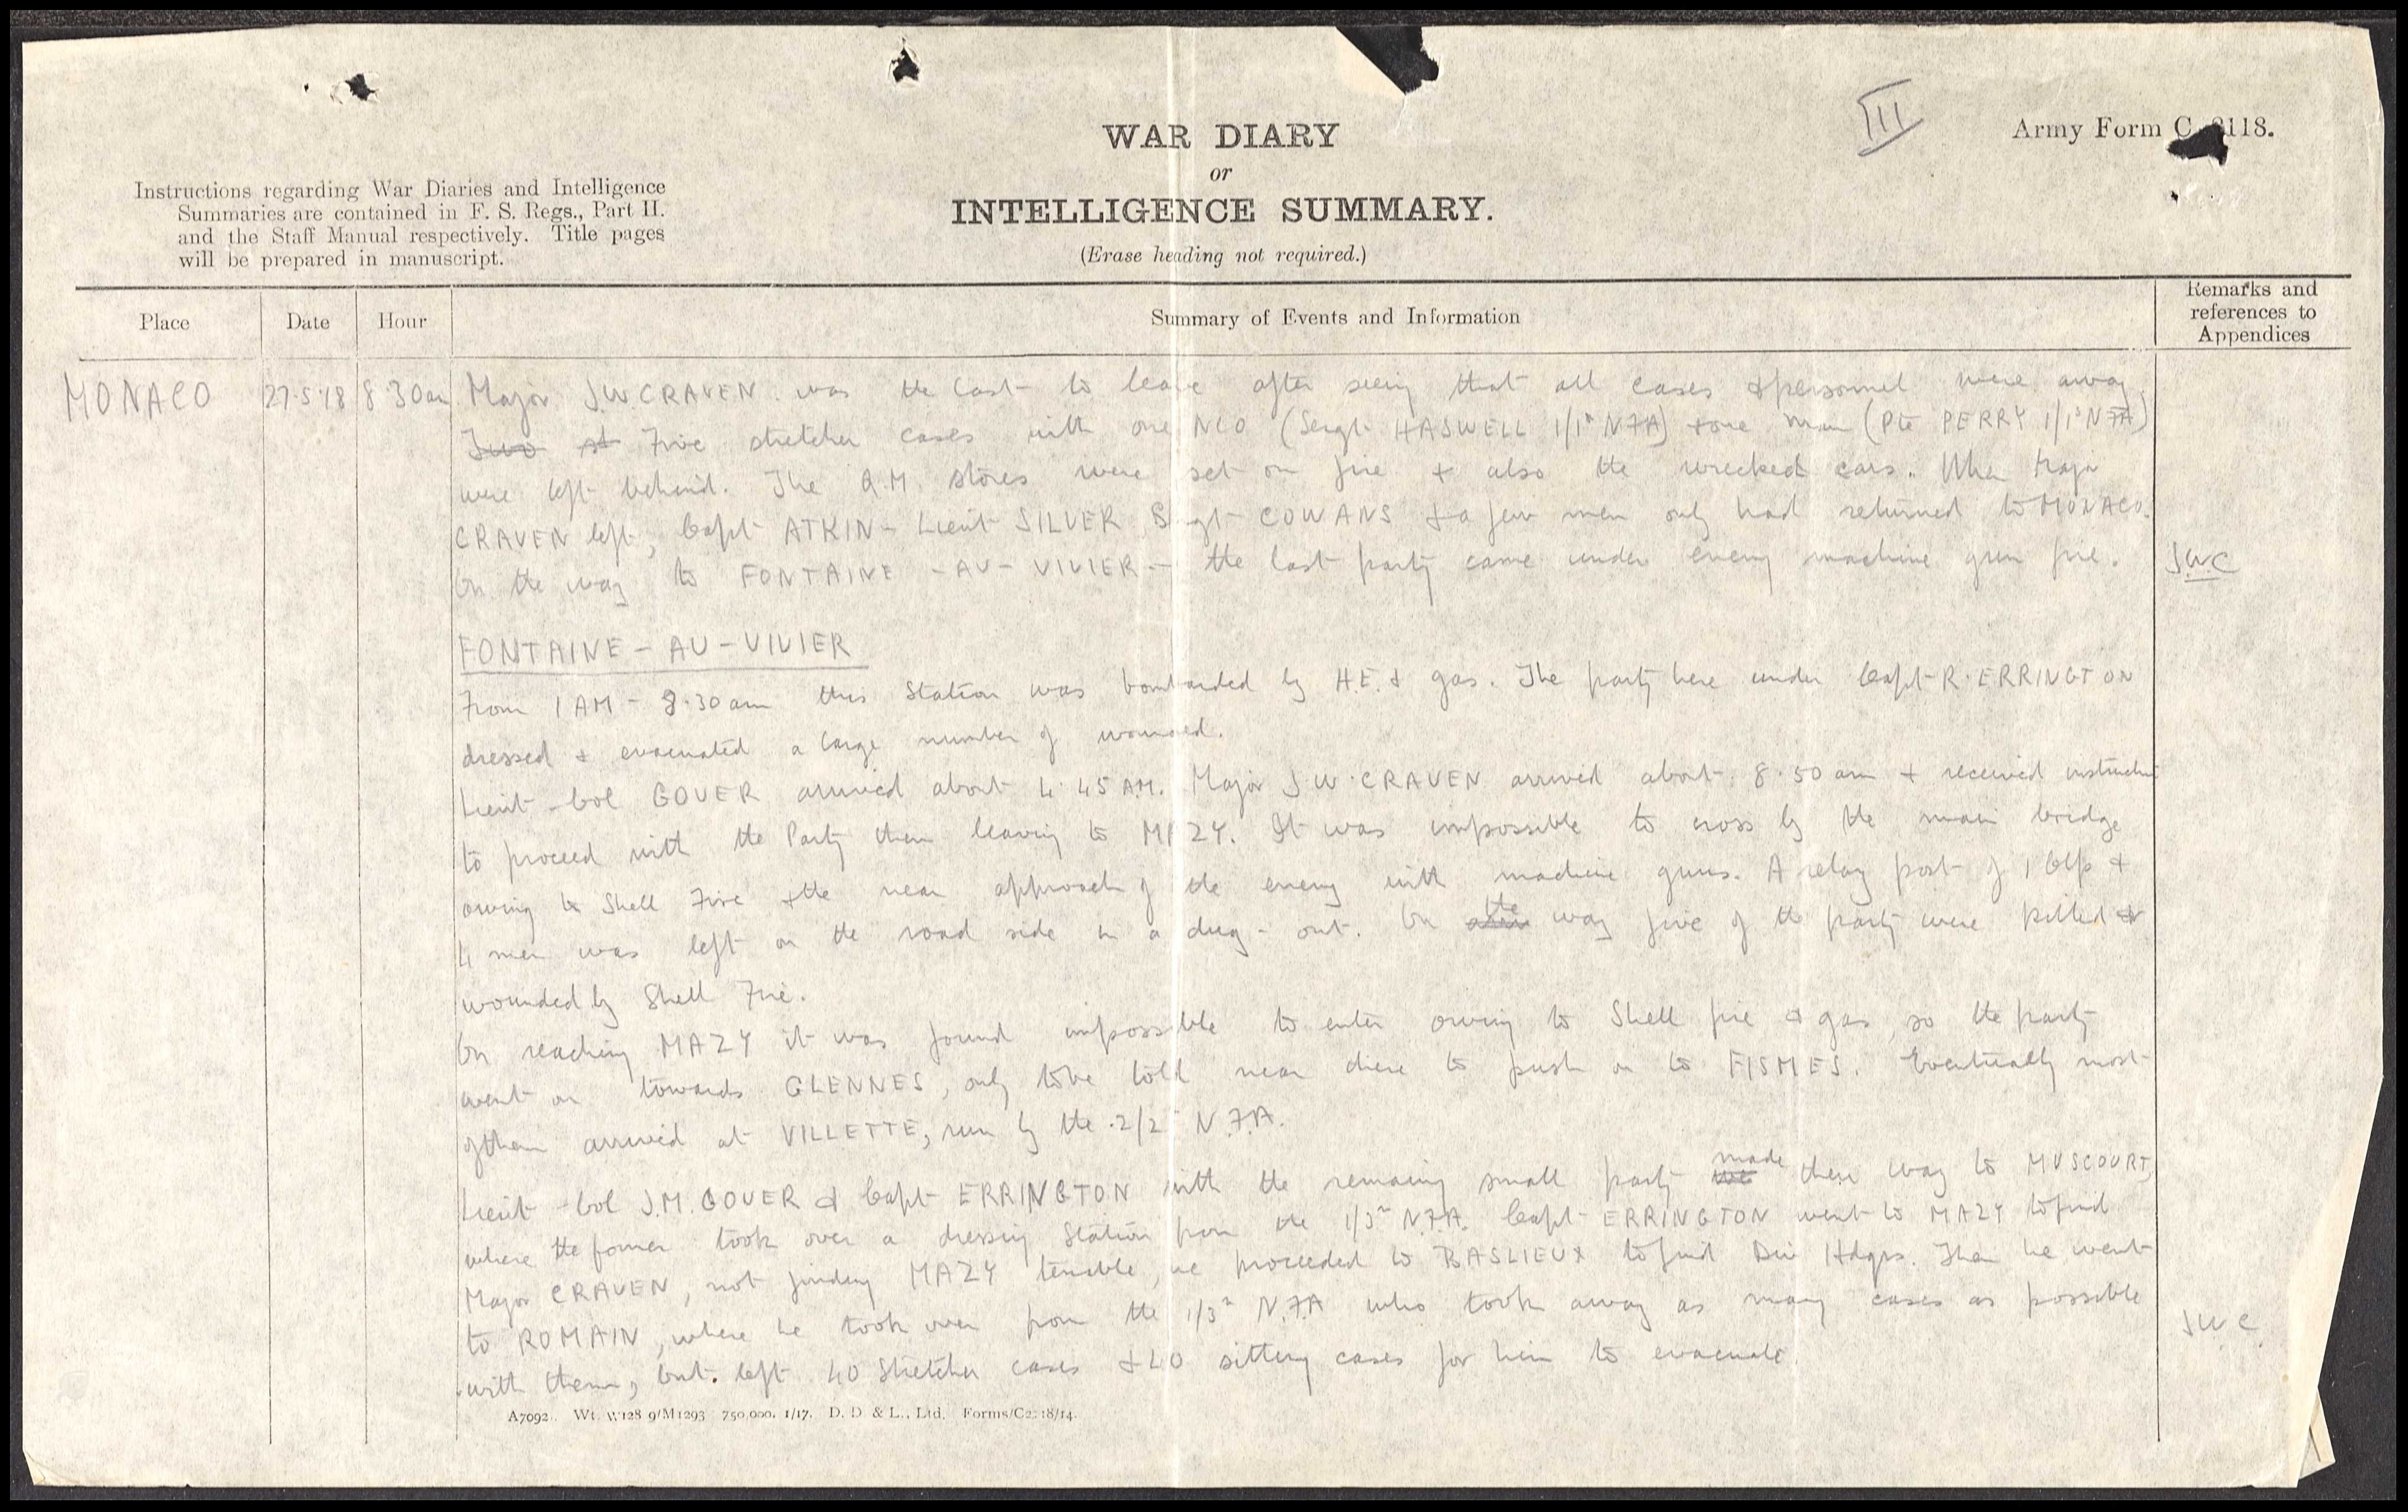 III
Army Form C. 2118.
WAR DIARY
or
INTELLIGENCE SUMMARY.
(Erase heading not required.)
Instructions regarding War Diaries and Intelligence
Summaries are contained in F. S. Regs., Part II.
and the Staff Manual respectively. Title pages
will be prepared in manuscript.
Place
Date
Hour
Summary of Events and Information
Remarks and
references to
Appendices
MONACO 27.5.18 8 30am Major J.W. CRAVEN was the last to leave after seeing that all cases & personnel were away.
Two st Five stretcher cases with one NCO (Sergt HASWELL 1/1st NFA) & one man (Pte PERRY 1/1st NFA)
were left behind. The Q.M. stores were set on fire & also the wrecked cars. When Major
CRAVEN left, Capt ATKIN - Lieut SILVER Sergt COWANS & a few men only had returned to MONACO.
On the way to FONTAINE - AU - VIVIER - the last party came under enemy machine gun fire.
JWC
FONTAINE - AU - VIVIER
From 1 AM - 8.30 am this Station was bombarded by H.E. & gas. The party here under Capt R. ERRINGTON
dressed & evacuated a large number of wounded.
Lieut - Col GOVER arrived about 4.45 AM. Major J W CRAVEN arrived about 8.50 am & received
to proceed with the Party then leaving to MAZY. It was impossible to cross by the main bridge
owing to Shell Fire & the near approach of the enemy with machine guns. A relay post of 1 Clp &
4 men was left on the road side in a dug - out. On the way five of the party were killed or
wounded by Shell Fire.
On reaching MAZY it was found impossible to enter owing to Shell fire & gas, so the party
went on towards GLENNES, only to be told near there to push on to FISMES. Eventually most
of them arrived at VILLETTE, run by the 2/2 N.F.A.
Lieut - Col J.M. GOVER & Capt ERRINGTON with the remaing small party made there way to MUSCOURT,
where the former took over a dressing Station from the 1/3rd N.F.A. Capt ERRINGTON went to MAZY to find
Major CRAVEN, not finding MAZY tenable, he proceeded to BASLIEUX to find Div Hdqrs. Then he went
to ROMAIN, where he took over from the 1/3rd N.F.A who took away as many cases as possible
with them, but left 40 Stretcher cases & 40 sitting cases for him to evacuate.
JWC
A7092. Wt. W128 9/M1293 750,000. 1/17. D. D & L., Ltd. Forms/C2118/14.